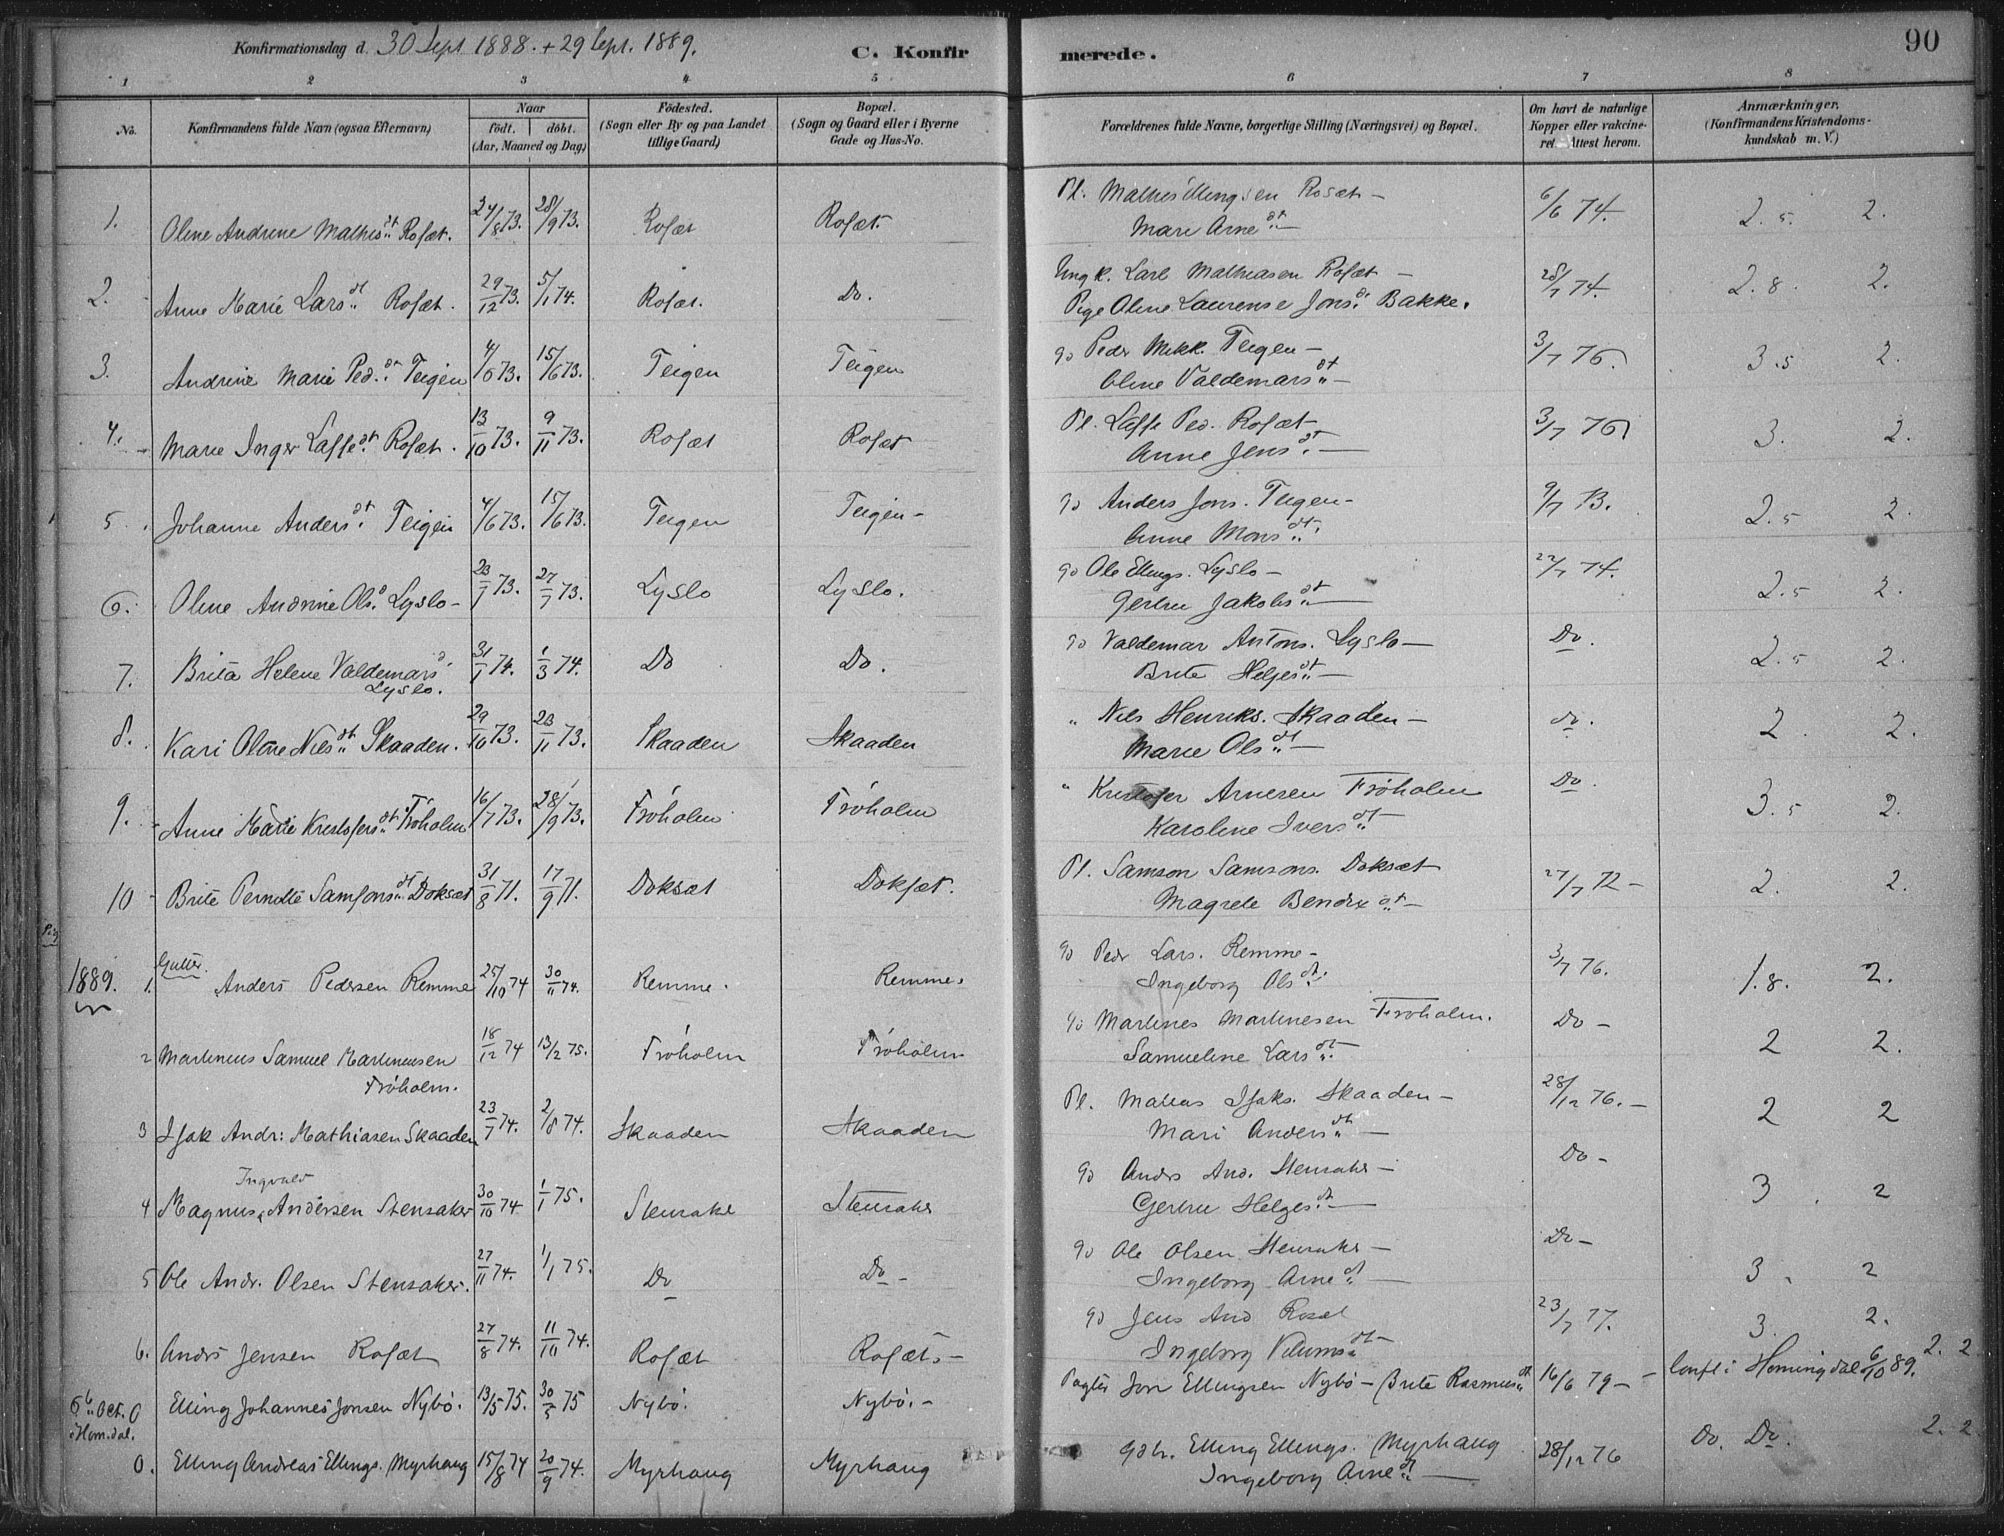 Konfirmationsdag d. 30 Sept 1888. + 29 Sept. 1889.
C. Konfirmerede.
90
1 2 3 4 5 6 7 8
No.
Konfirmandens fulde Navn (ogsaa Efternavn)
Naar
født. døbt.
(Aar, Maaned og Dag)
Födested.
(Sogn eller By og paa Landet
tillige Gaard)
Bopæl.
(Sogn og Gaard eller i Byerne
Gade og Hus-No.
Forældrenes fulde Navne, borgerlige Stilling (Næringsvei) og Bopæl.
Om havt de naturlige
Kopper eller vakcine-
ret. Attest herom.
Anmærkninger.
(Konfirmandens Kristendoms-
kundskab m. V.)
1. Oline Andrine Mathisdt Rosæt. 24/8 73. 28/9 73. Rosæt Rosæt. Pl. Mathis Ellingsen Rosæt - 6/6 74. 2.5 2.
Mari Arnedt —
2. Anne Marie Larsdt Rosæt. 29/12 73. 5/1 74. Rosæt. Do. Ungk. Lars Mathiasen Rosæt - 28/7 74. 2.8. 2.
Pige Oline Laurense Jonsd. Bakke.
3. Andrine Marie Ped.dt Teigen 4/6 73. 15/6 73. Teigen Teigen Peder Mikk. Teigen - 3/7 76. 3.5 2.
Oline Valdemarsdt —
4. Marie Inger Lassedt Rosæt. 13/10 73. 9/11 73. Rosæt Rosæt Pl. Lasse Ped. Rosæt - 3/7 76 3. 2.
Anne Jensdt —
5. Johanne Andersdt Teigen 4/6 73. 15/6 73. Teigen Teigen - Anders Jons. Teigen - 9/7 2.5 2.
Anne Monsdt.
6. Oline Andrine Ols.d Lyslo - 73. 27/7 73. Lyslo Lyslo. Ole Ellings. Lyslo - 22/7 74. 2.5 2.
Gertru Jakobsdt —
7. Brita Helene Valdemarsd. 31/1 74. 1/3 74. Do Do. Valdemar Antons. Lyslo — Do. 2.5 2.
Lyslo. Brite Helgesdt —
8. Kari Oline Nilsdt Skaaden. 29/10 73. 23/11 73. Skaaden Skaaden " Nils Henriks. Skaaden - do. 2. 2.
Marie Olsdt —
9. Anne Marie Kristofersdt Fröholm 16/7 73. 28/9 73. Fröholm Fröholm " Kristofer Arnesen Fröholm Do. 3.5 2.
Karoline Iversdt —
10 - Brite Pernille Samsonsdt Doksæt 31/8 71. 17/9 71. Doksæt Doksæt. Pl. Samson Samsons. Doksæt 27/7 72 - 2. 2.
Magrete Bendixdt —
Gutter.
1889. 1. Anders Pedersen Remme 25/10 74 30/11 74. Remme. Remme. Peder Lars. Remme - 3/7 76. 1.8. 2.
Ingeborg Olsdt.
2 Martinus Samuel Martinusen 18/12 74 13/2 75. Fröholm Fröholm Martines Martinesen Fröholm. Do - 2 2.
Fröholm. Samueline Larsdt —
3 Isak Andr: Mathiasen Skaaden 23/7 74. 2/8 74. Skaaden Skaaden Pl. Matias Isaks. Skaaden - 28/12 76. - 2 2
Mari Andersdt —
Ingvald
4 Magnus Andersen Stensaker 30/10 74 1/1 75. Stensaker Stensaker Anders And. Stensaker - Do - 3. 2
Gertru Helgesdt —
5 Ole Andr. Olsen Stensaker. 27/11 74. 1/1 75. Do Do - Ole Olsen Stensaker - Do - 3. 2
Ingeborg Arnedt —
6. Anders Jensen Rosæt 27/8 74. 11/10 74. Rosæt Rosæt. - Jens And Rosæt 23/7 77. 3. 2.
Ingeborg Vilumsdt —
6te Oct. 0 Elling Johannes Jonsen Nybö. 13/5 75. 30/5 75 Nybö. Nybö. - Jon Ellingsen Nybö - Brite Rasmusdt 16/6 79 - Conf. i Horningdal 6/10 89. 2. 2
i Horn.dal.
0. Elling Andreas Ellings. Myrhaug 15/8 74 20/9 74. Myrhaug Myrhaug Gdbr. Elling Ellings. Myrhaug 28/12 76 Do. Do. 2. 2
Ingeborg Arnedt —